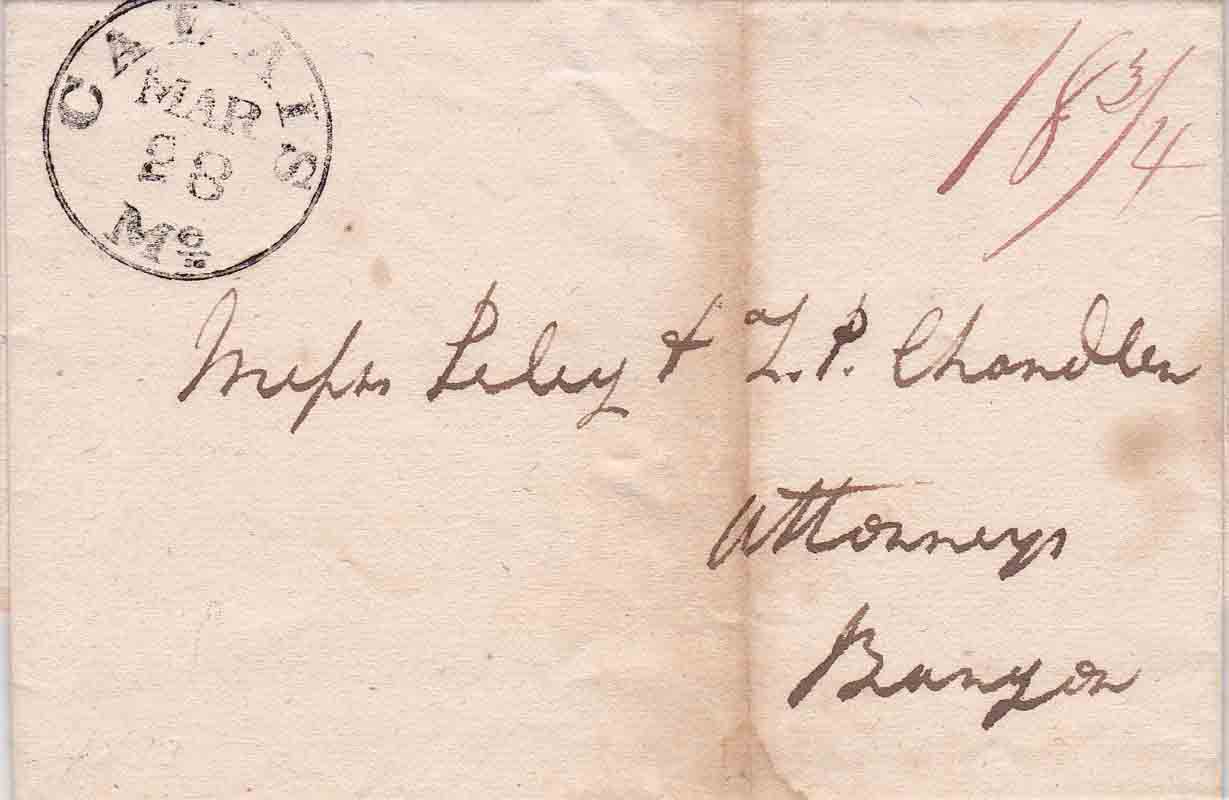 CALAIS
MAR
28
Me
18 3/4
Messrs Peley & Z. P. Chandler
Attorneys
Bangor